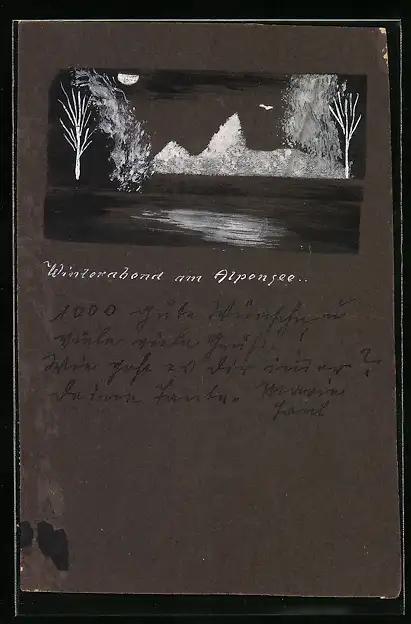 Winterabend am Alpensee..
1000 gute Wünsche u
viele viele Grüße!
Wie geht es dir immer?
Deine Tante. Marie